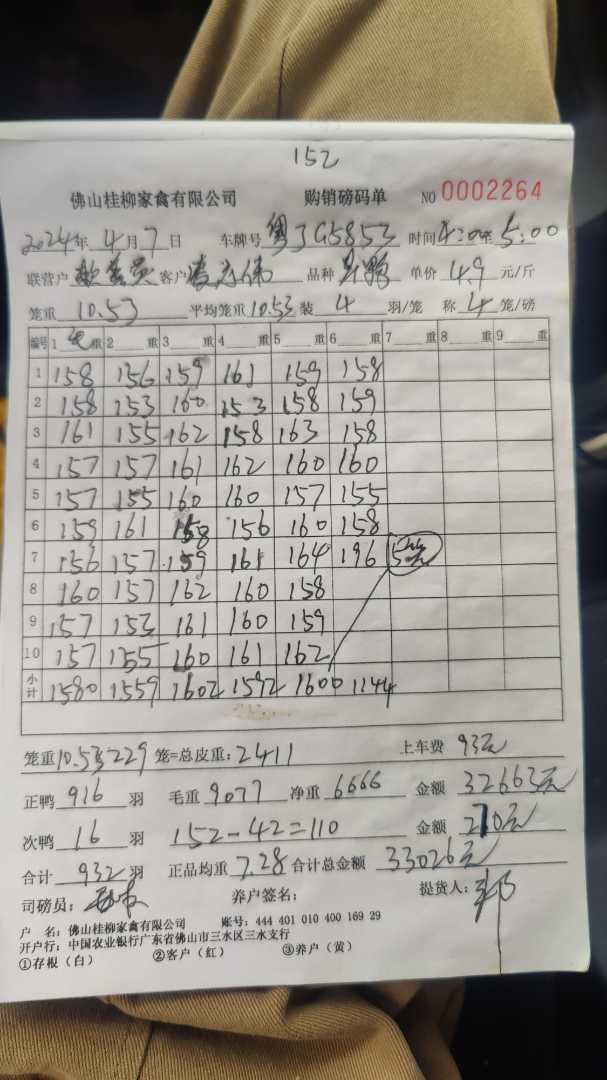 152
佛山桂柳家禽有限公司 购销磅码单 NO 0002264
2024年 4月 7日 车牌号 粤JG5853 时间 4:00至5:00
联营户 客户 品种 单价 4.9 元/斤
笼重 10.53 平均笼重 10.53 装 4 羽/笼 称 4 笼/磅
编号 1 毛 重 2 重 3 重 4 重 5 重 6 重 7 重 8 重 9 重
1 158 156 159 161 159 158
2 158 153 160 153 158 159
3 161 155 162 158 163 158
4 157 157 161 162 160 160
5 157 155 160 160 157 155
6 159 161 158 156 160 158
7 156 157 159 161 164 196 5笼
8 160 157 162 160 158
9 157 153 161 160 159
10 157 155 160 161 162
小计 1580 1559 1602 1592 1600 1144
笼重 10.53 229 笼=总皮重: 2411 上车费 93元
正鸭 916 羽 毛重 9077 净重 6666 金额 32663元
次鸭 16 羽 152-42=110 金额 270元
合计 932 羽 正品均重 7.28 合计总金额 33026元
司磅员: 养户签名: 提货人: 郭
户 名: 佛山桂柳家禽有限公司 账号: 444 401 010 400 169 29
开户行: 中国农业银行广东省佛山市三水区三水支行
①存根(白) ②客户(红) ③养户(黄)